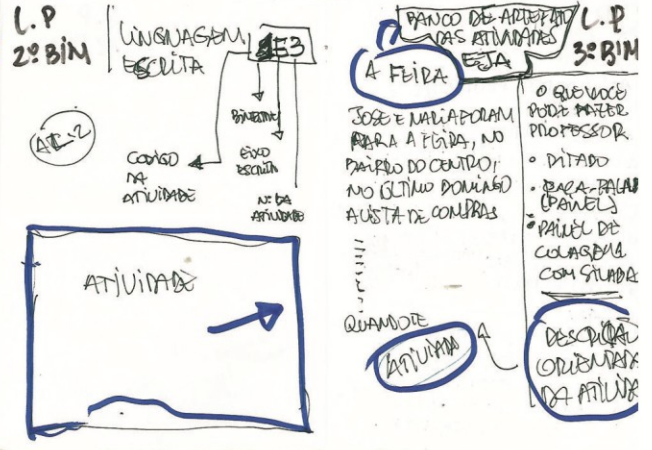 L.P
2º BIM
LINGUAGEM
ESCRITA
E3
BIMESTRE
EIXO
ESCRITA
CODIGO
DA
ATIVIDADE
Nº DA
ATIVIDADE
ATIVIDADE
BANCO DE ARTEFATO
DAS ATIVIDADES
EJA
L.P
3º BIM
A FEIRA
JOSE E MARIA FORAM
PARA A FEIRA, NO
BAIRRO DO CENTRO,
NO ÚLTIMO DOMINGO
A LISTA DE COMPRAS
QUANDO TE
ATIVIDAD
O QUE VOCÊ
PODE FAZER
PROFESSOR
• DITADO
• CAÇA-PALAV
(PAINEL)
• PAINEL DE
COLAGEM
COM SILABA
DESCRIÇÃO
ORIENTADA
DA ATIVIDA